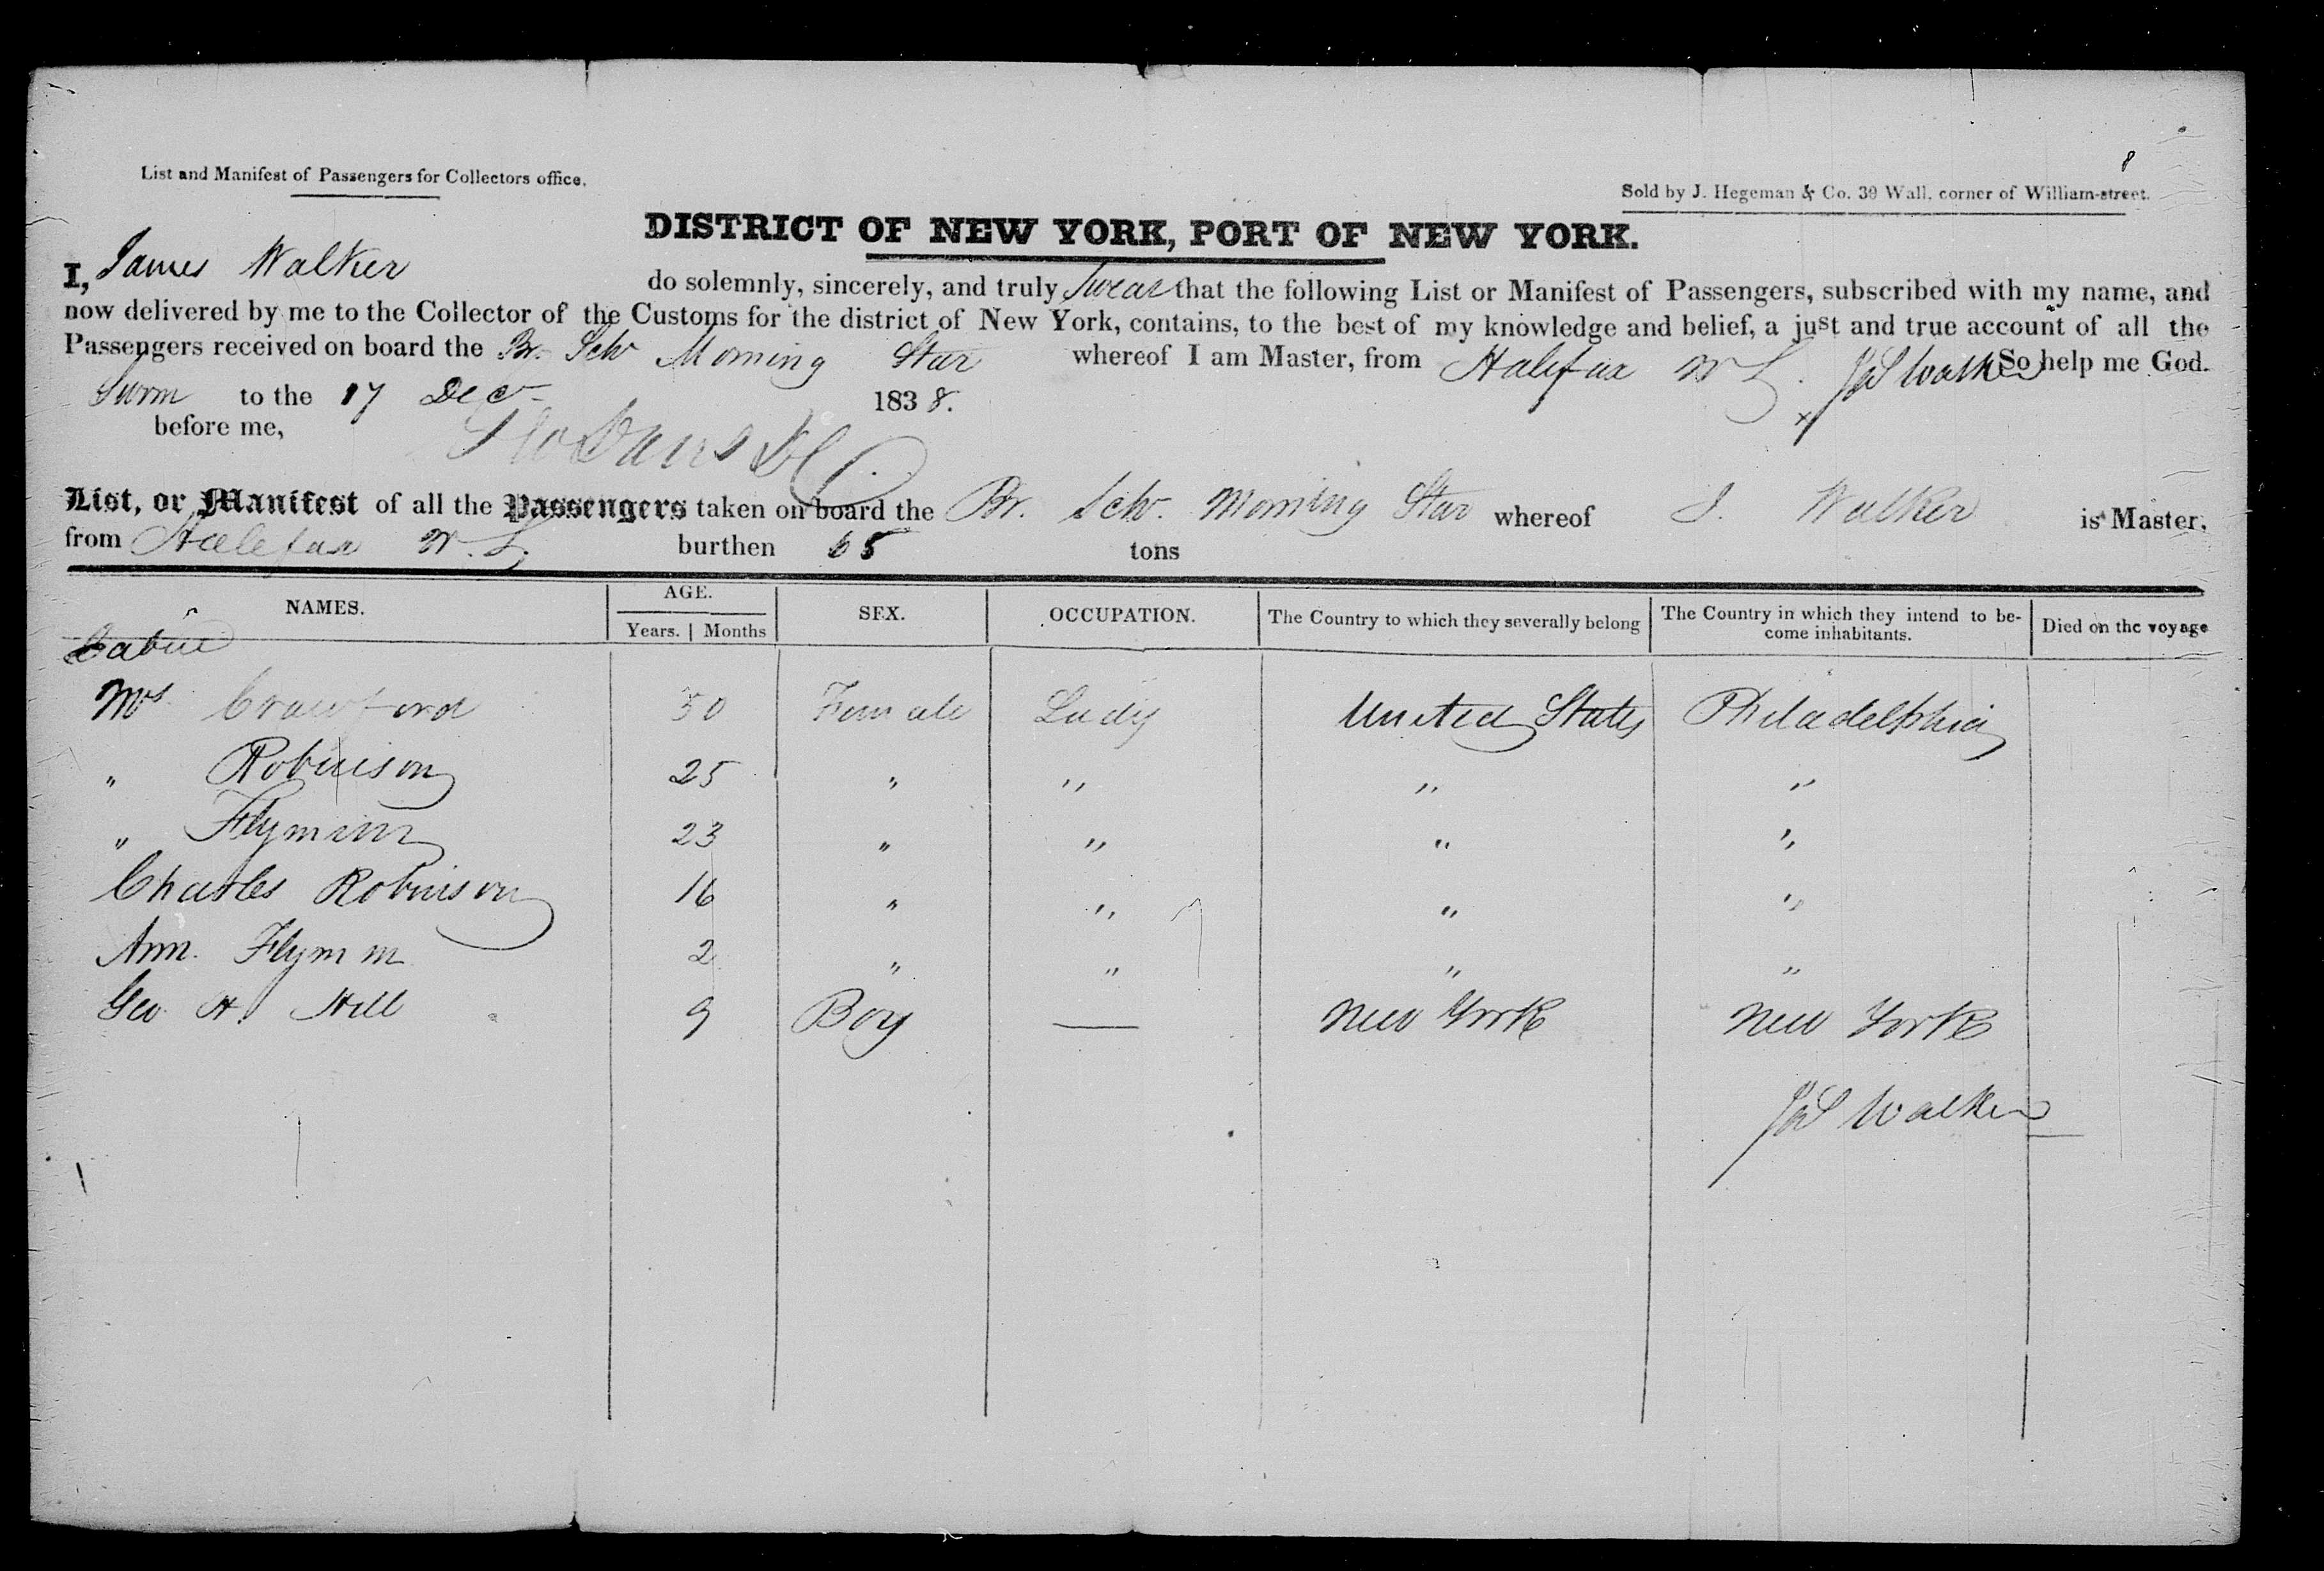 8
List and Manifest of Passengers for Collectors office.
Sold by J. Hegeman & Co. 39 Wall, corner of William-street.
DISTRICT OF NEW YORK, PORT OF NEW YORK.
I, James Walker do solemnly, sincerely, and truly Swear that the following List or Manifest of Passengers, subscribed with my name, and
now delivered by me to the Collector of the Customs for the district of New York, contains, to the best of my knowledge and belief, a just and true account of all the
Passengers received on board the Br. Schr Morning Star whereof I am Master, from Halifax So help me God.
Jas Walker
Sworn to the 17 Dec 1838.
before me,
List, or Manifest of all the Passengers taken on board the Br. Schr. Morning Star whereof J. Walker is Master,
from Halifax burthen 65 tons
NAMES. AGE. Years. Months SEX. OCCUPATION. The Country to which they severally belong The Country in which they intend to become inhabitants. Died on the voyage
Cabin
Mrs Crawford 50 Female Lady United States Philadelphia
" Robinson 25 " " " "
" 23 " " " "
Charles Robinson 16 " " " "
Ann. 2 " " " "
Geo H. Hill 9 Boy — New York New York
Jas Walker